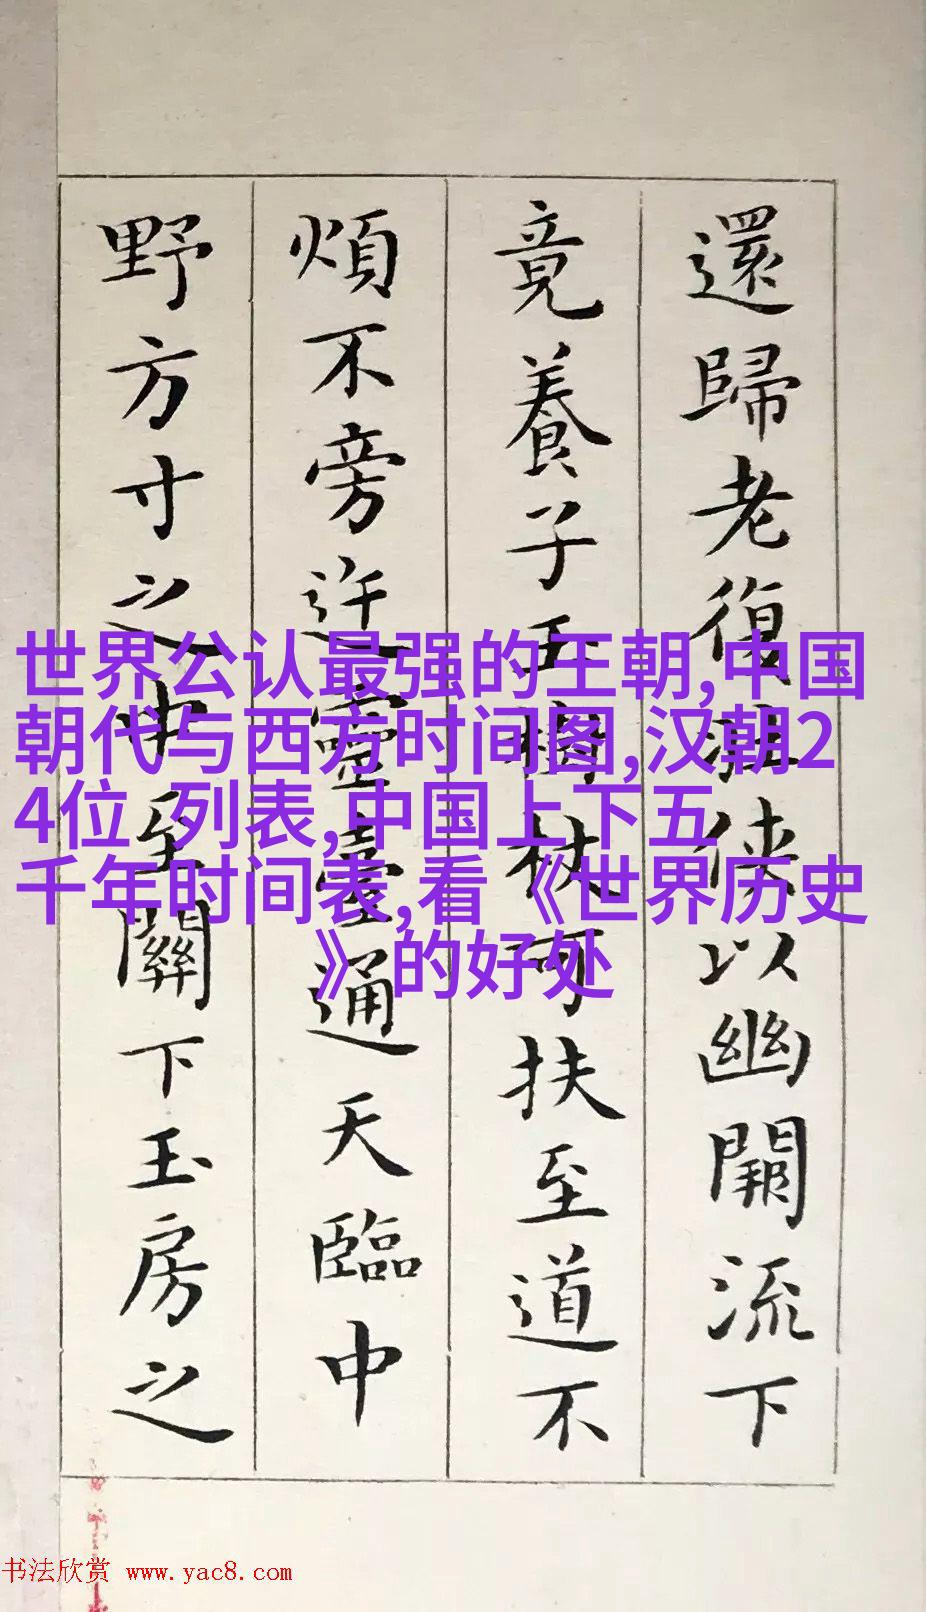 還歸老復壯俠以幽闕流下
竟養子玉樹杖可扶至道不
煩不旁迕靈臺通天臨中
野方寸之中至關下玉房之
世界公认最强的王朝,中国
朝代与西方时间图,汉朝2
4位 列表,中国上下五
千年时间表,看《世界历史
》的好处
书法欣赏 www.yac8.com